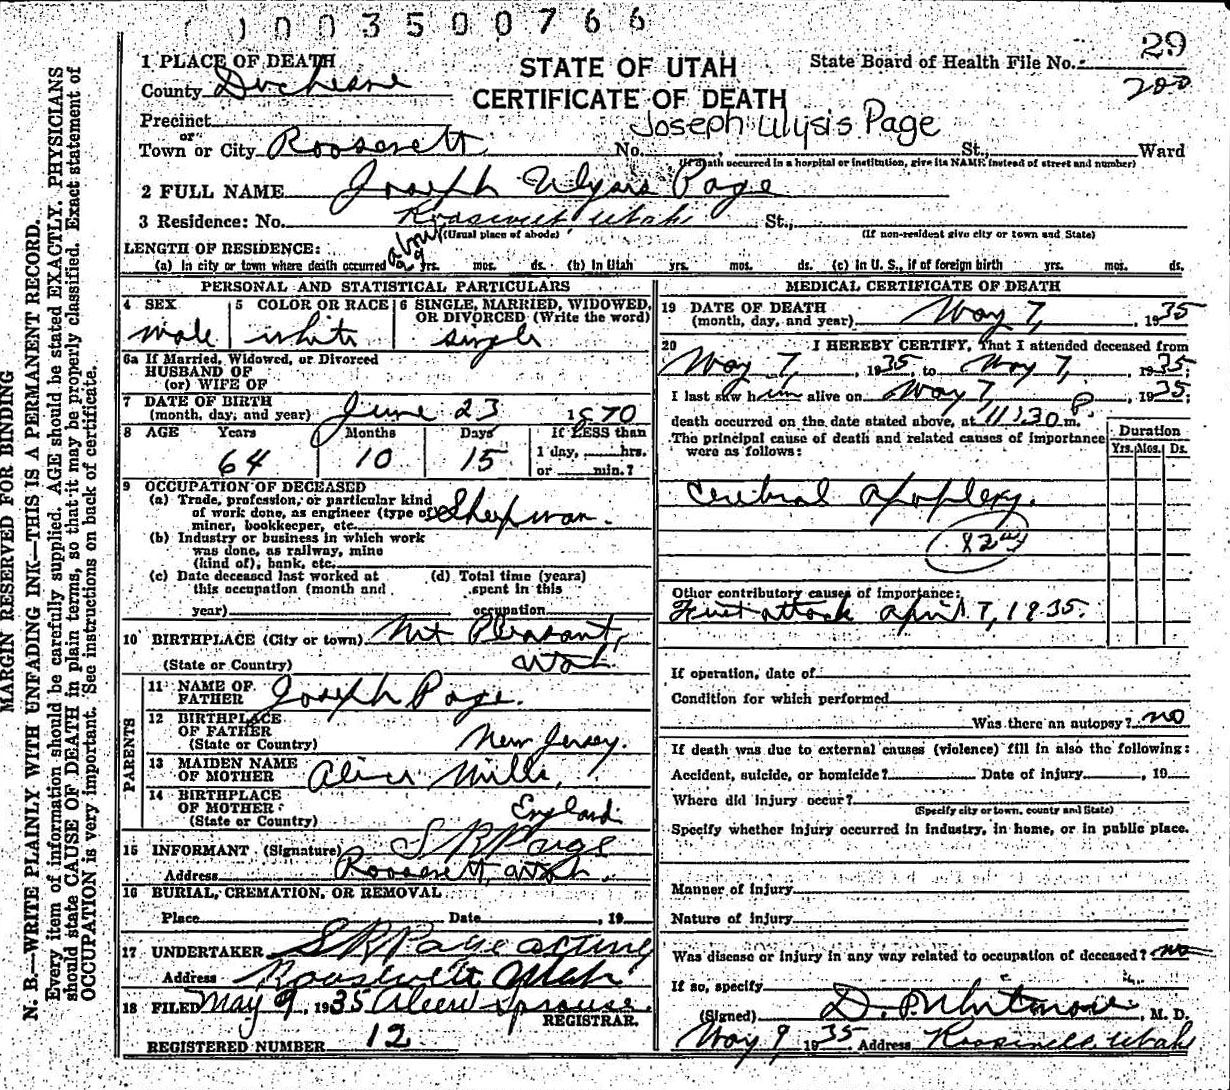 0 0 0 3 5 0 0 7 6 6
29
200
1 PLACE OF DEATH
STATE OF UTAH
CERTIFICATE OF DEATH
State Board of Health File No.
County Duchesne
Joseph Ulysis Page
Precinct
or
Town or City Roosevelt No. St., Ward
(If death occurred in a hospital or institution, give its NAME instead of street and number)
2 FULL NAME Joseph Ulysis Page
3 Residence: No. Roosevelt Utah St.,
(Usual place of abode) (If non-resident give city or town and State)
LENGTH OF RESIDENCE:
(a) In city or town where death occurred yrs. mos. ds. (b) In Utah yrs. mos. ds. (c) in U. S., if of foreign birth yrs. mos. ds.
PERSONAL AND STATISTICAL PARTICULARS
4 SEX
male
5 COLOR OR RACE
white
6 SINGLE, MARRIED, WIDOWED, OR DIVORCED (Write the word)
single
6a If Married, Widowed, or Divorced
HUSBAND OF
(or) WIFE OF
7 DATE OF BIRTH
(month, day, and year) June 23 1870
8 AGE Years Months Days If LESS than
64 10 15 1 day, hrs.
or min.?
9 OCCUPATION OF DECEASED
(a) Trade, profession, or particular kind
of work done, as engineer (type of
miner, bookkeeper, etc. Sheepman.
(b) Industry or business in which work
was done, as railway, mine
(kind of), bank, etc.
(c) Date deceased last worked at
this occupation (month and
year)
(d) Total time (years)
spent in this
occupation
10 BIRTHPLACE (City or town) Mt Pleasant,
(State or Country) Utah
PARENTS
11 NAME OF
FATHER Joseph Page.
12 BIRTHPLACE
OF FATHER
(State or Country) New Jersey.
13 MAIDEN NAME
OF MOTHER Alice Mills,
14 BIRTHPLACE
OF MOTHER
(State or Country) England
15 INFORMANT (Signature) S R Page
Address Roosevelt, Utah.
16 BURIAL, CREMATION, OR REMOVAL
Place Date , 19
17 UNDERTAKER S R Page acting
Address Roosevelt Utah
18 FILED May 9, 1935 Aleen Sprouse
REGISTRAR.
REGISTERED NUMBER 12
MEDICAL CERTIFICATE OF DEATH
19 DATE OF DEATH
(month, day, and year) May 7, , 1935
20 I HEREBY CERTIFY, That I attended deceased from
May 7, , 1935, to May 7, , 1935;
I last saw him alive on May 7, , 1935;
death occurred on the date stated above, at 11:30 P. m.
The principal cause of death and related causes of importance
were as follows:
Duration
Yrs. Mos. Ds.
Cerebral apoplexy.
Other contributory causes of importance:
First attack April 7, 1935.
If operation, date of
Condition for which performed
Was there an autopsy? no
If death was due to external causes (violence) fill in also the following:
Accident, suicide, or homicide? Date of injury , 19
Where did injury occur?
(Specify city or town, county and State)
Specify whether injury occurred in industry, in home, or in public place.
Manner of injury
Nature of injury
Was disease or injury in any way related to occupation of deceased? no
If so, specify
(Signed) D. P. Whitmore , M. D.
May 9 1935 Address Roosevelt, Utah
MARGIN RESERVED FOR BINDING
N. B.—WRITE PLAINLY WITH UNFADING INK—THIS IS A PERMANENT RECORD.
Every item of information should be carefully supplied. AGE should be stated EXACTLY. PHYSICIANS
should state CAUSE OF DEATH in plain terms, so that it may be properly classified. Exact statement of
OCCUPATION is very important. See instructions on back of certificate.